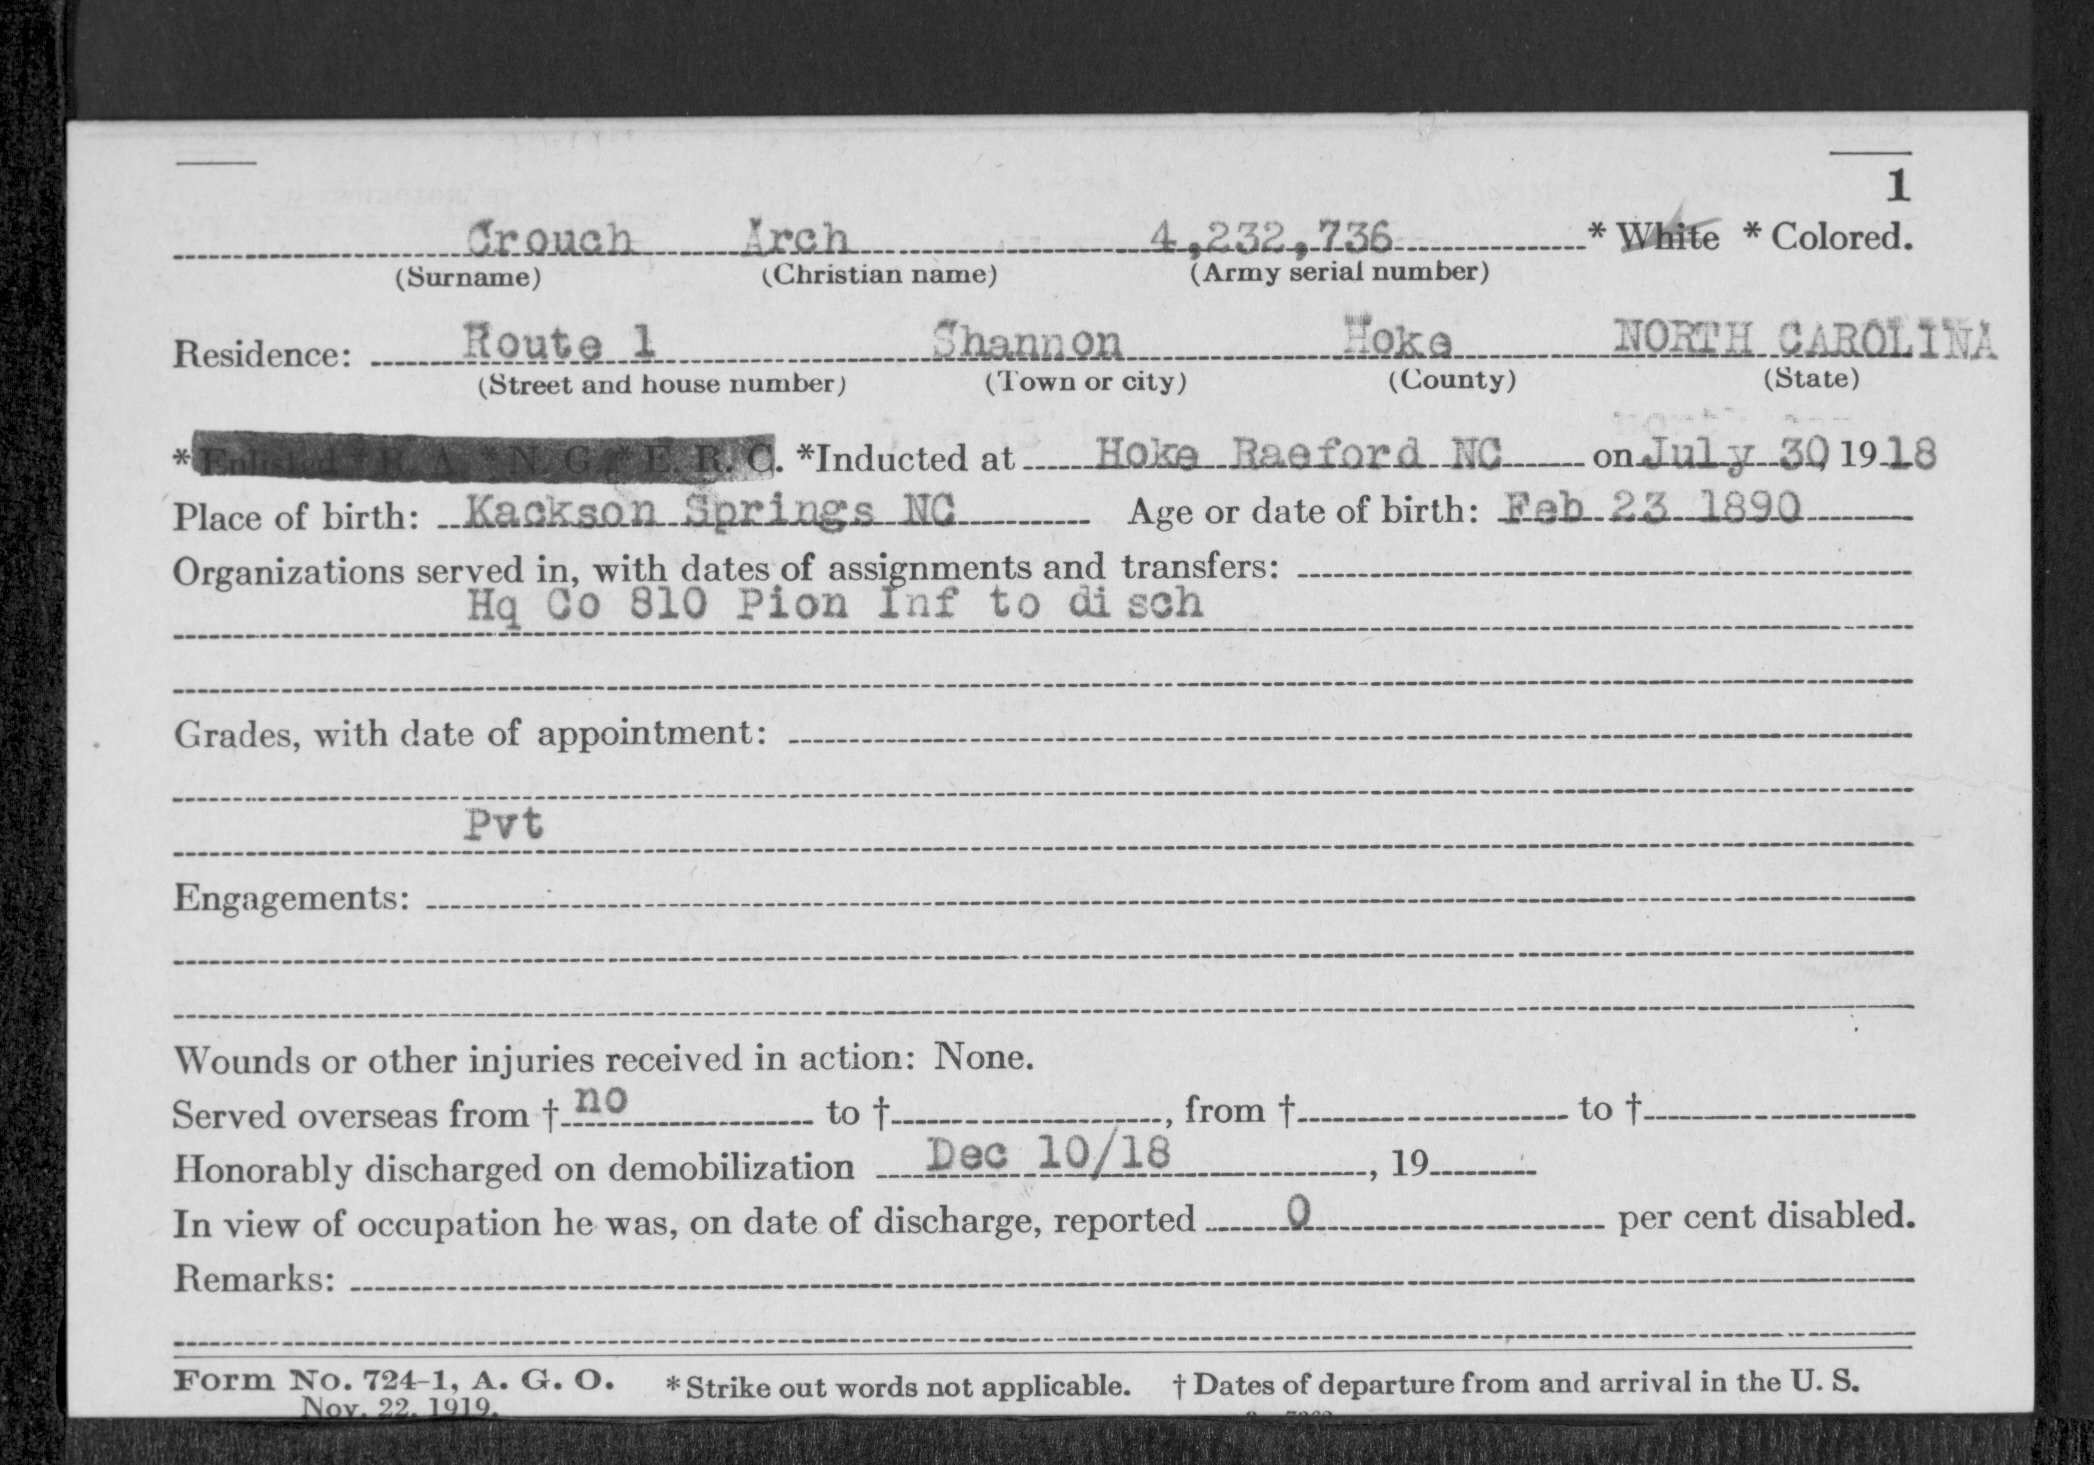 1
Crouch Arch 4,232,736 * White * Colored.
(Surname) (Christian name) (Army serial number)
Residence: Route 1 Shannon Hoke NORTH CAROLINA
(Street and house number) (Town or city) (County) (State)
* Enlisted * R. A. * N. G. * E. R. C. *Inducted at Hoke Raeford NC on July 30, 1918
Place of birth: Kackson Springs NC Age or date of birth: Feb 23 1890
Organizations served in, with dates of assignments and transfers:
Hq Co 810 Pion Inf to disch
Grades, with date of appointment:
Pvt
Engagements:
Wounds or other injuries received in action: None.
Served overseas from † no to † , from † to †
Honorably discharged on demobilization Dec 10/18 , 19
In view of occupation he was, on date of discharge, reported 0 per cent disabled.
Remarks:
Form No. 724-1, A. G. O. * Strike out words not applicable. † Dates of departure from and arrival in the U. S.
Nov. 22, 1919.